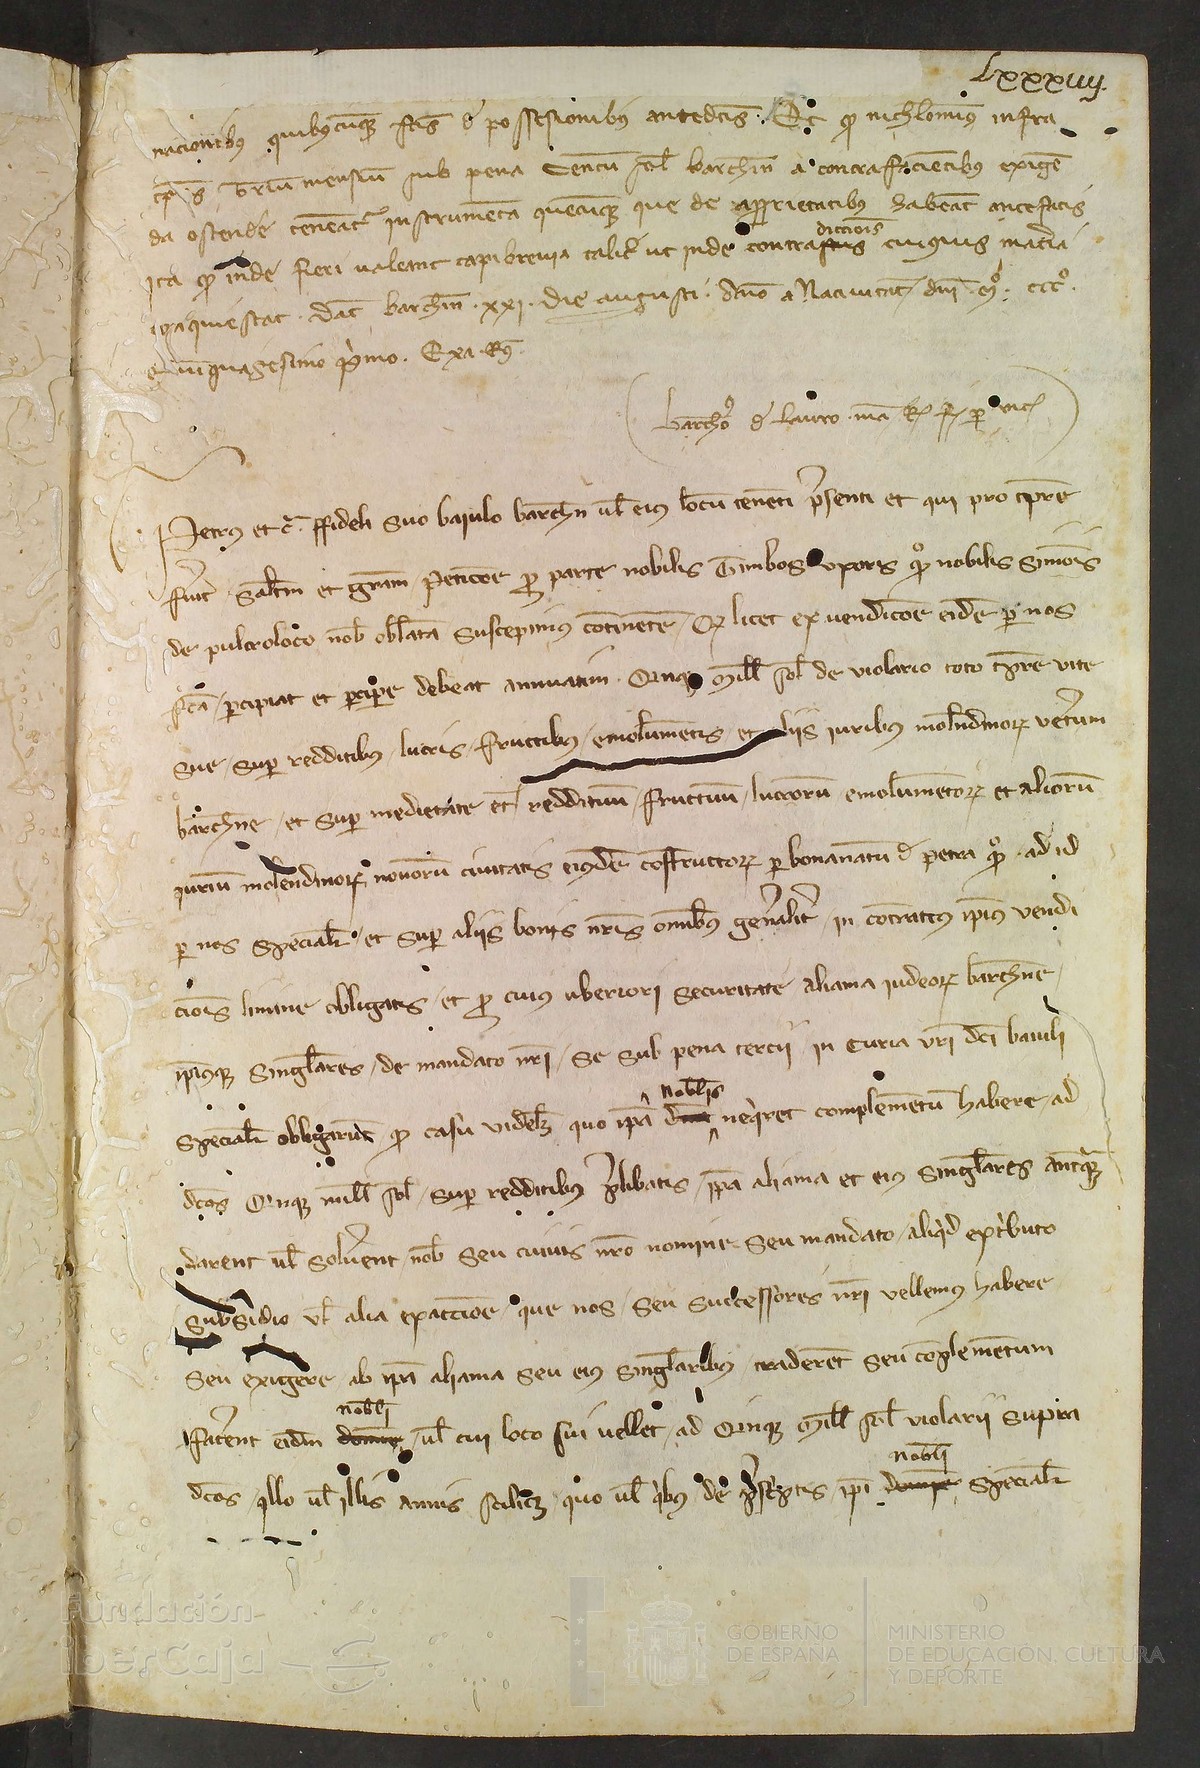 Lxxxiiij.
nacionibus quibuscumque fcis d possessionibus antedcis. Et qd nichlominus infra
tps trium mensium sub pena Centum sol barchn a contrafacientibus exigen
da ostende teneatr instrumenta quecumque que de apprietatibus habeat antefatis
ita qd inde fieri valeant capibrevia talit ut inde contradiccionis cuiusvis materia
conquiescat. Dat barchn xxi die augusti. Anno a Nativitate dni mo. ccco.
quinquagesimo primo. Exa. Rus.
bartho d lauro ma R f p
Petrus et c. ffideli suo baiulo barchn vl eius locum tenenti presenti et qui pro tpre
fuit Saltm et gram. Peticoe pro parte nobilis Timbors uxoris qo nobilis Simonis
de pulcroloco nob oblata Suscepimus continente, Qd licet ex vendicoe eidem per nos
fca, percipiat et percipe debeat annuatim Quinque Mill sol de violario toto tpre vite
sue, super redditibus, lucris, fructibus, emolumentis, et aliis iuribus molendinor veterum
barchne, et super medietate et reddituum, fructuum, lucrorum emolumentor et aliorum
iurium molendinor novorum civitatis eiusdem constructor per bonanatum d petra qo. ad id
per nos specialit, et super aliis bonis nris omnibus generalit, in contractus ipius vendi
cionis limine obligatis, et pro cuius uberiori securitate aliama iudeor barchne,
ipiusque Singlares, de mandato nri, se sub pena tercii, in Curia vri dci baiuli
specialit obligarunt pro casu videlz quo ipa nobilis nequiret complementum habere, ad
dcos Quinque mill sol, super redditibus prelibatis, ipa aliama et eius Singlares antequam
darent vl solverent nob seu cuivis nro nomine seu mandato, aliquid ex tributo
subsidio vl alia exaccione, que nos, seu successores nri vellemus habere
seu exigere ab ipa aliama seu eius singlaribus, traderent seu complementum
facerent eidm nobli, vl cui loco sui vellet, ad Quinque Mill sol violarii supra
dcos, illo vl illis annis scilicz, quo vl quibus de prescriptis, ipi nobli specialit
Fundación
iberCaja
GOBIERNO
DE ESPAÑA
MINISTERIO
DE EDUCACIÓN, CULTURA
Y DEPORTE